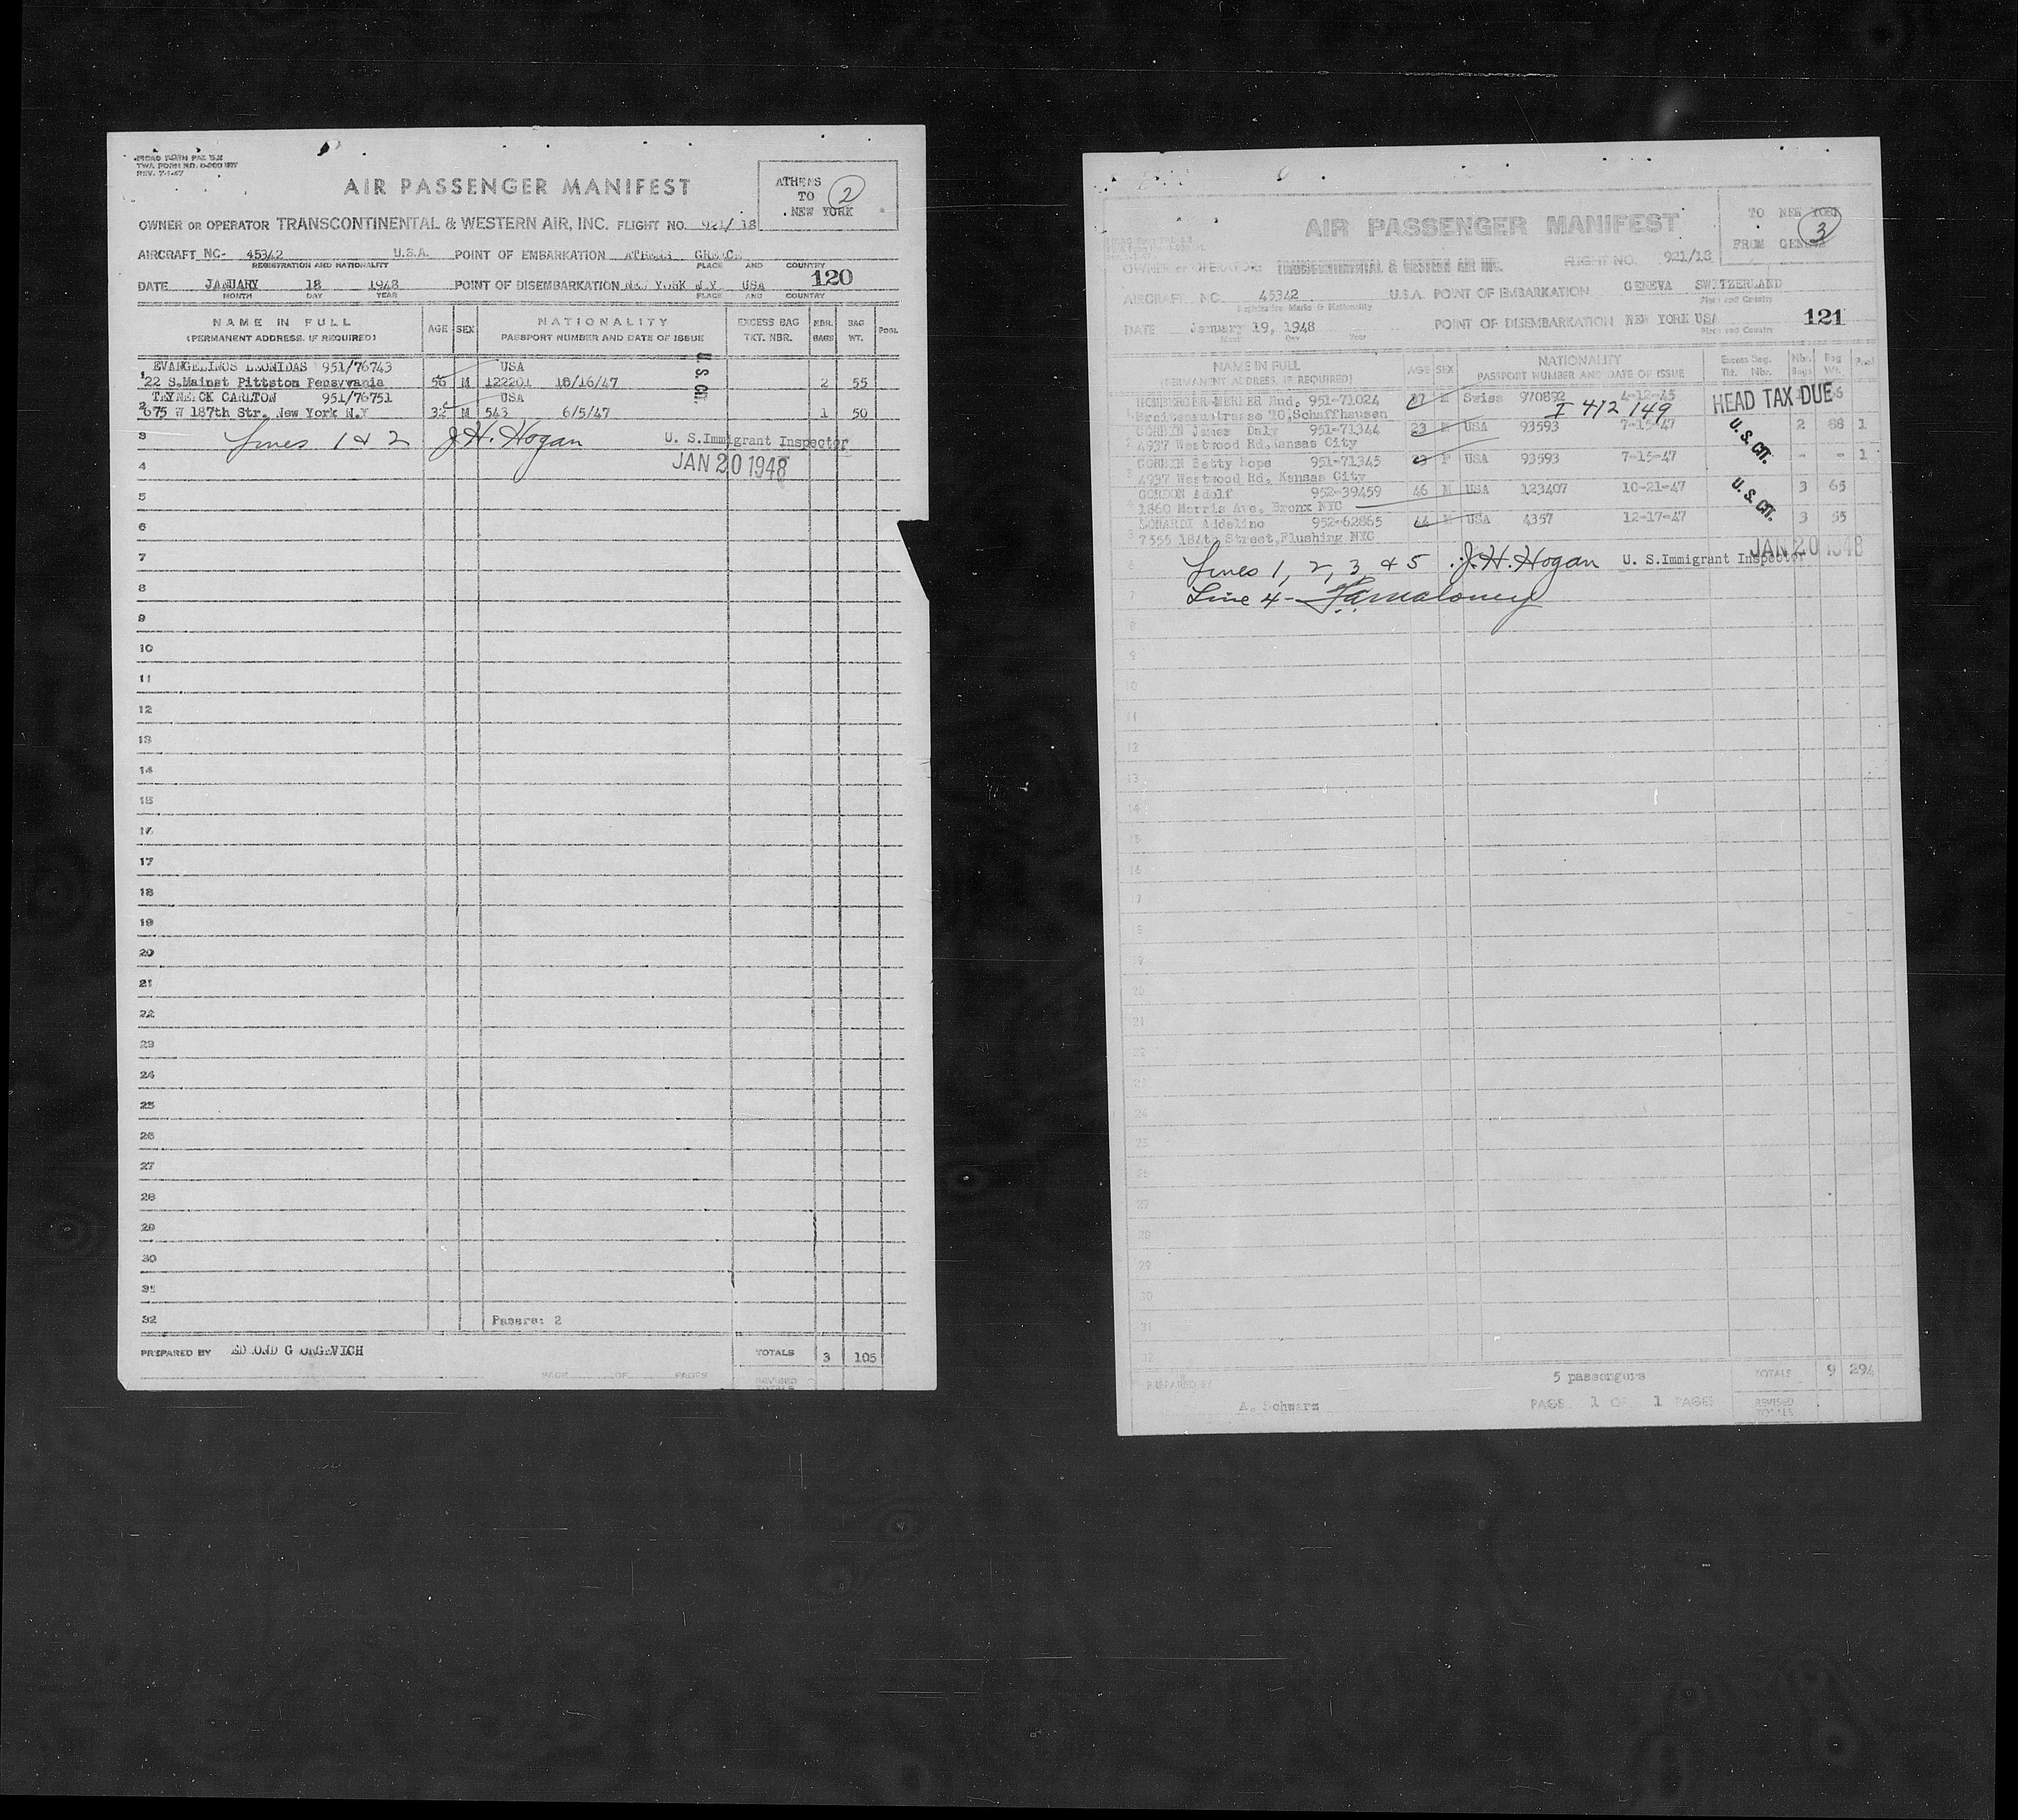 REV. 7-1-47
AIR PASSENGER MANIFEST
ATHENS
TO
NEW YORK
2
OWNER OR OPERATOR TRANSCONTINENTAL & WESTERN AIR, INC. FLIGHT NO. 921/ 18
AIRCRAFT NC- 45342 U.S.A. POINT OF EMBARKATION ATHENS GREECE
REGISTRATION AND NATIONALITY PLACE AND COUNTRY
120
DATE JANUARY 18 1948 POINT OF DISEMBARKATION NEW YORK N.Y USA
MONTH DAY YEAR PLACE AND COUNTRY
NAME IN FULL AGE SEX NATIONALITY EXCESS BAG NBR. BAG POOL
(PERMANENT ADDRESS, IF REQUIRED) PASSPORT NUMBER AND DATE OF ISSUE TKT. NBR. BAGS WT.
EVANGELINOS LEONIDAS 951/76743 USA
1 22 S.Mainst Pittston Pensyvania 56 M 122201 10/16/47 2 55
U.S. CIT.
CARLTON 951/76751 USA
2 675 W 187th Str. New York N.Y 32 M 543 6/5/47 1 50
3 Lines 1 & 2 J.H. Hogan U. S.Immigrant Inspector
4 JAN 20 1948
5
6
7
8
9
10
11
12
13
14
15
16
17
18
19
20
21
22
23
24
25
26
27
28
29
30
31
32 Passrs: 2
PREPARED BY EDMOND GEORGEVICH TOTALS 3 105
PAGE OF PAGES REVISED TOTALS
AIR PASSENGER MANIFEST
TO NEW YORK
3
FROM GENEVA
OWNER or OPERATOR: TRANSCONTINENTAL & WESTERN AIR INC. FLIGHT NO. 921/18
AIRCRAFT NC. 45342 U.S.A. POINT OF EMBARKATION GENEVA SWITZERLAND
Registration Marks & Nationality Place and Country
DATE January 19, 1948 POINT OF DISEMBARKATION NEW YORK USA
Month Day Year Place and Country
121
NAME IN FULL AGE SEX NATIONALITY Excess Bag. Nbr. Bag Pool
(PERMANENT ADDRESS, IF REQUIRED) PASSPORT NUMBER AND DATE OF ISSUE Tkt. Nbr. Bags Wt.
HOMBERGER-MERIER Rud. 951-71024 M Swiss 970892 4-12-45
HEAD TAX DUE
1 20,Schaffhausen I 412 149
GORBIN James Daly 951-71344 23 M USA 93593 7-15-47 2 88 1
2 4937 Westwood Rd,Kansas City
U. S. CIT.
GORBIN Betty Hope 951-71345 23 F USA 93593 7-15-47 - - 1
3 4937 Westwood Rd, Kansas City
GORDON Adolf 952-39459 46 M USA 123407 10-21-47 3 65
4 1860 Morris Ave. Bronx NYC
U. S. CIT.
Addelino 952-62865 44 M USA 4357 12-17-47 3 55
5 7355 184th Street,Flushing NYC
JAN 20 1948
6 Lines 1, 2, 3 & 5 J.H. Hogan U. S.Immigrant Inspector
7 Line 4 -
8
9
10
11
12
13
14
15
16
17
18
19
20
21
22
23
24
25
26
27
28
29
30
31
32
PREPARED BY 5 passengers TOTALS 9 294
A. Schwarz PAGE 1 OF 1 PAGES REVISED TOTALS